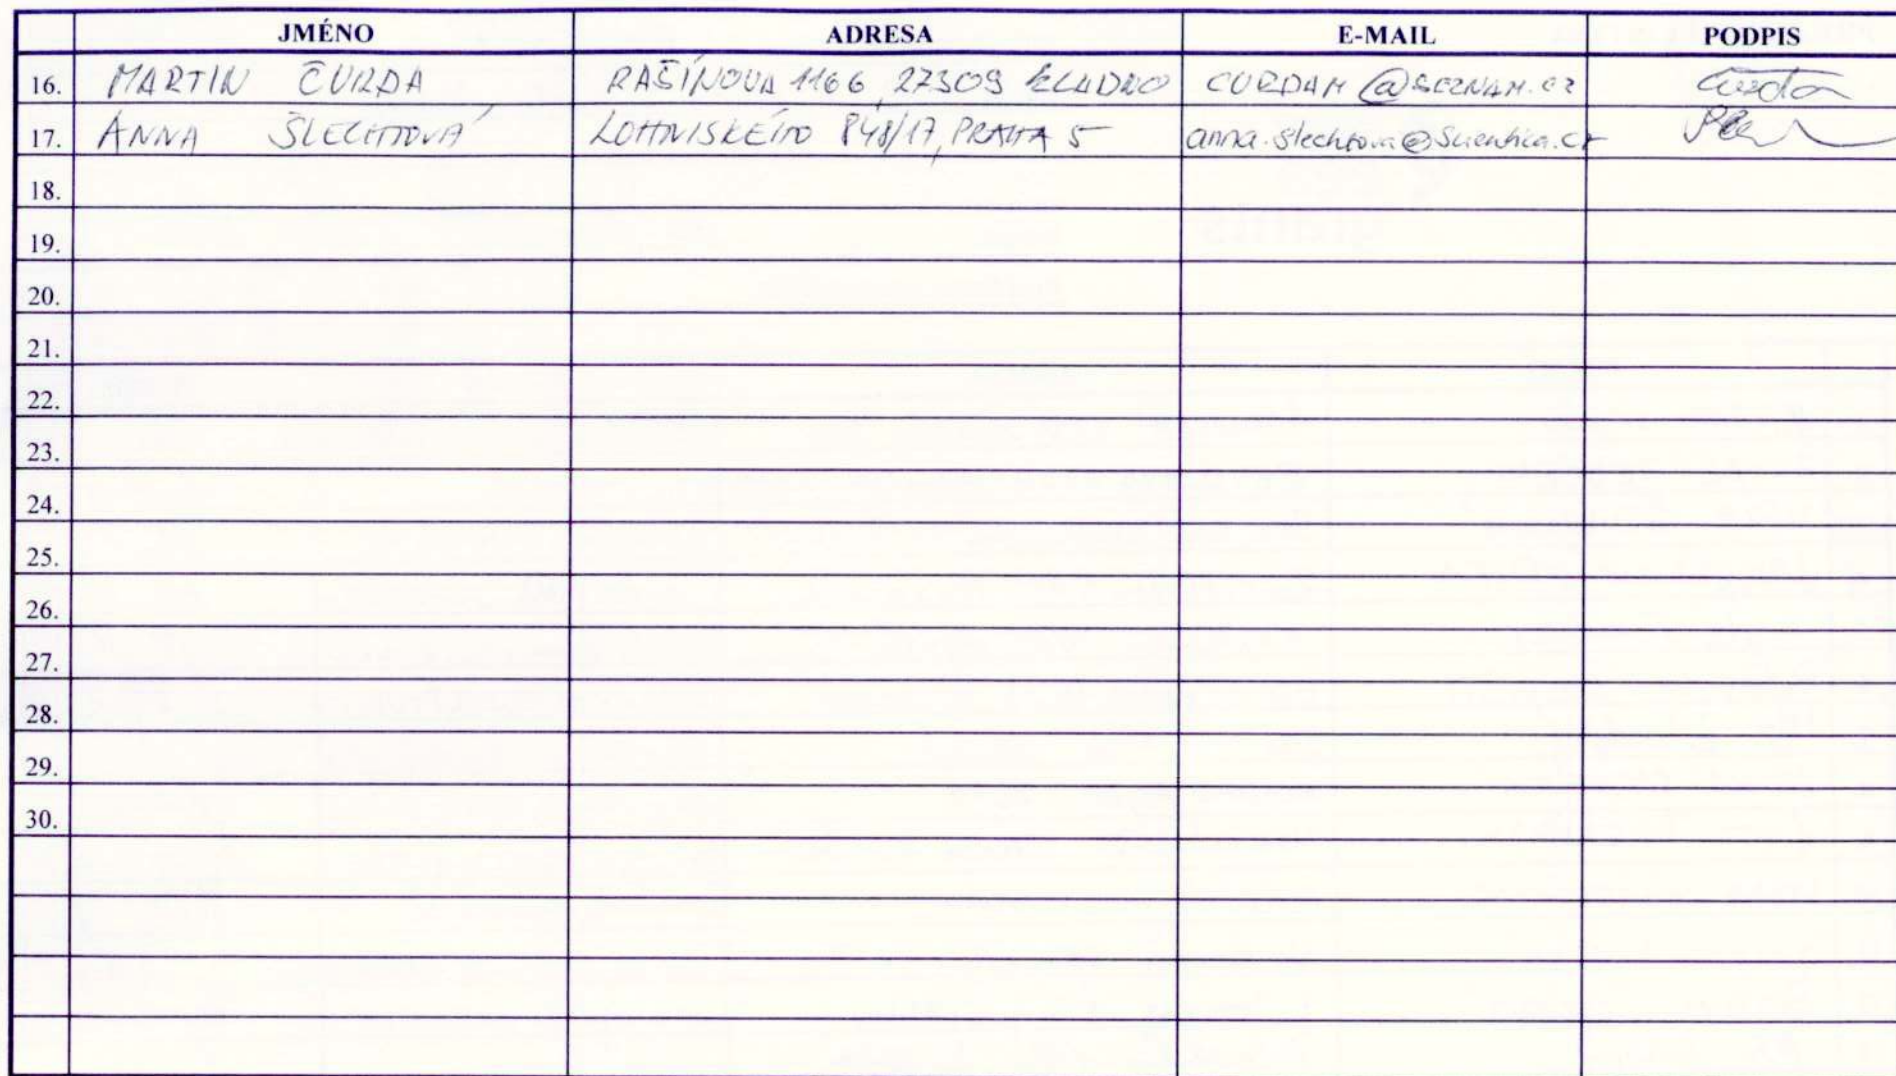 JMÉNO ADRESA E-MAIL PODPIS
16. MARTIN ČURDA RAŠÍNOVA 1166, 27309 KLADNO CURDAM@SEZNAM.CZ Čurda
17. ANNA ŠLECHTOVÁ LOHNISKÉHO 848/17, PRAHA 5 anna.slechtova@scientica.cz
18.
19.
20.
21.
22.
23.
24.
25.
26.
27.
28.
29.
30.